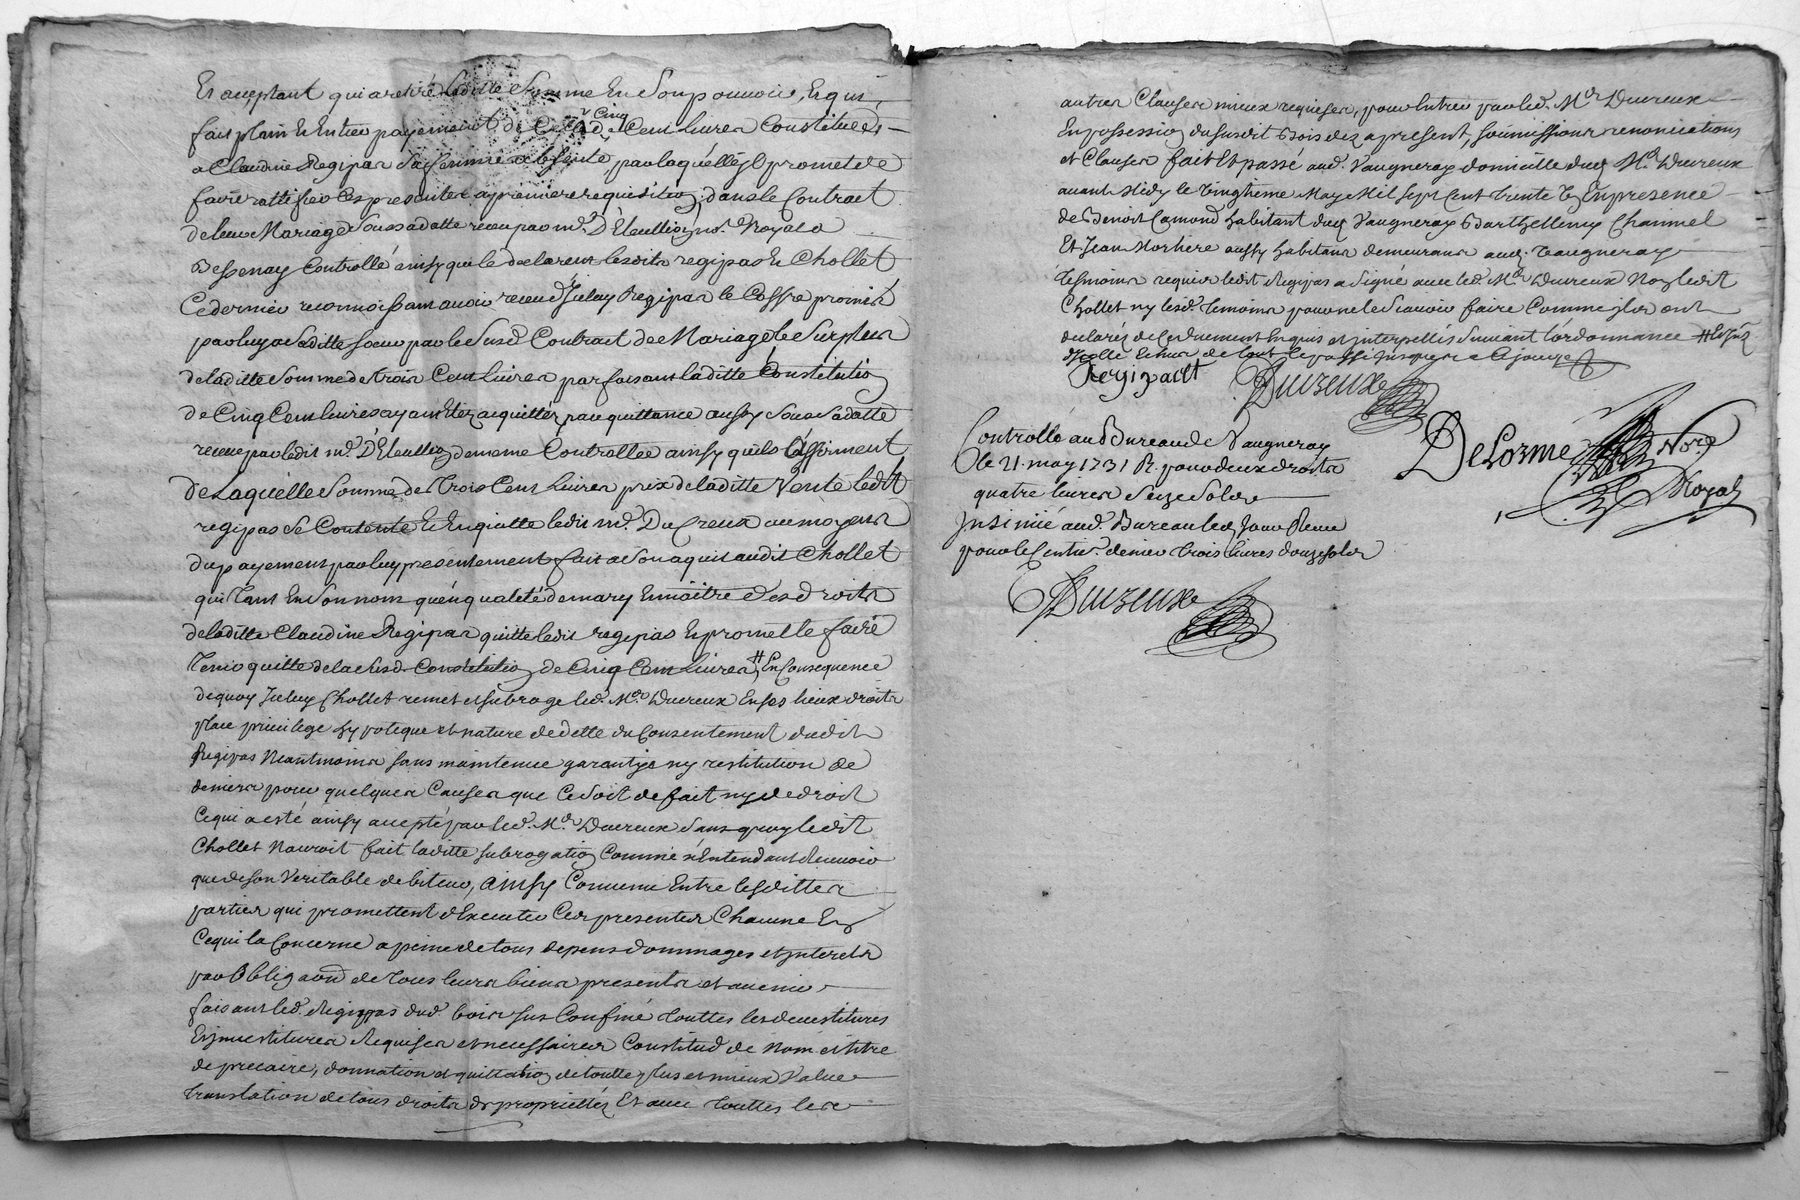 Et acceptant qui a retiré laditte Somme En Son pouvoir, Et qui
fait plain Et Entier payement de Cinq Cent livres Constituées
a Claudine Regipas Sa femme absente, par laquelle Il promet de
faire rattifier Ces presentes a premiere requisition, dans le Contrat
de leur Mariage Sous sa datte receu par me. D'Eleullion no.re Royal a
Bessenay Controllé ainsy que le declarent lesdits regipas Et Chollet
Ce dernier reconnoissant avoir receu Iceluy Regipas le Coffre promis
par luy a Saditte Soeur par le Susd Contract de Mariage le Surplus
de laditte Somme de trois Cent livres parfaisant laditte Constitution
de Cinq Cent livres ayant Etez acquittez par quittance aussy Sous Sa datte
receue par ledit me. D'Eleullion de meme Controllée ainsy qu'ils L'afferment
De Laquelle Somme de Trois Cent Livres prix de laditte Vente ledit
regipas Se Contente Et En quitte ledit me. Du Creux au moyen
du payement par luy presentement fait a Son aquit audit Chollet
qui Tant En Son nom qu'en qualité de mary Et maître des droits
de laditte Claudine Regipas quitte ledit regipas Et promet le faire
Tenir quitte de la Susd Constitution de Cinq Cent Livres # En Consequence
de quoy Iceluy Chollet remet et subroge led. Me. Ducreux En ses lieux droits
place privilege hypoteque et nature de dette du Consentement dudit
Regipas Neantmoins sans maintenue garantye ny restitution de
deniers pour quelques Causes que Ce Soit de fait ny de droit
Ce qui a esté ainsy accepté par led. Me. Ducreux Sans quoy ledit
Chollet Nauroit fait laditte subrogation Comme n'Entendant Recevoir
que de son Veritable debiteur, ainsy Convenu Entre lesdittes
parties qui promettent d'Executer Ces presentes Chacune En
Ce qui la Concerne a peine de tous depens dommages et Interets
par Obligaon de Tous leurs biens presents et avenir
faisant led. Regippas dud. bois sus Confiné Touttes les devestitures
Et Investitures Requises et necessaires Constitud de Nom et titre
de precaire, donnation et quittation de toutte plus et mieux Value
Translation de tous droits de propriettéz Et avec Touttes les
autres Clauses mieux requises, pour Entrer par led. Me. Ducreux
En possession du Susdit Bois dez a present, soumissions renonciations
et Clauses fait Et passé aud. Vaugneray domicille dud Me. Ducreux
avant Midy le Vingtieme May Mil Sept Cent Trente Un En presence
de Benoit Camond habitant dud Vaugneray Barthellemy Channel
Et Jean Morliere aussy habitans demeurans aud. Vaugneray
Tesmoins requis ledit Regipas a Signé avec led. Me. Ducreux Non ledit
Chollet ny lesd. Temoins pour ne le Scavoir faire Comme ils ont
declarés de Ce duement Enquis et Interpellés Suivant l'ordonnance # Et Intz
de tout le passé jusques a Ce jour
Regipaset Ducreux
Delorme Nore
Royal
Controllé au Bureau de Vaugneray
le 21. may 1731 R. pour deux droits
quatre livres Seize Solds
Insinué aud. Bureau led Jour Receu
pour le Centie. denier trois livres douze Solds
Ducreux